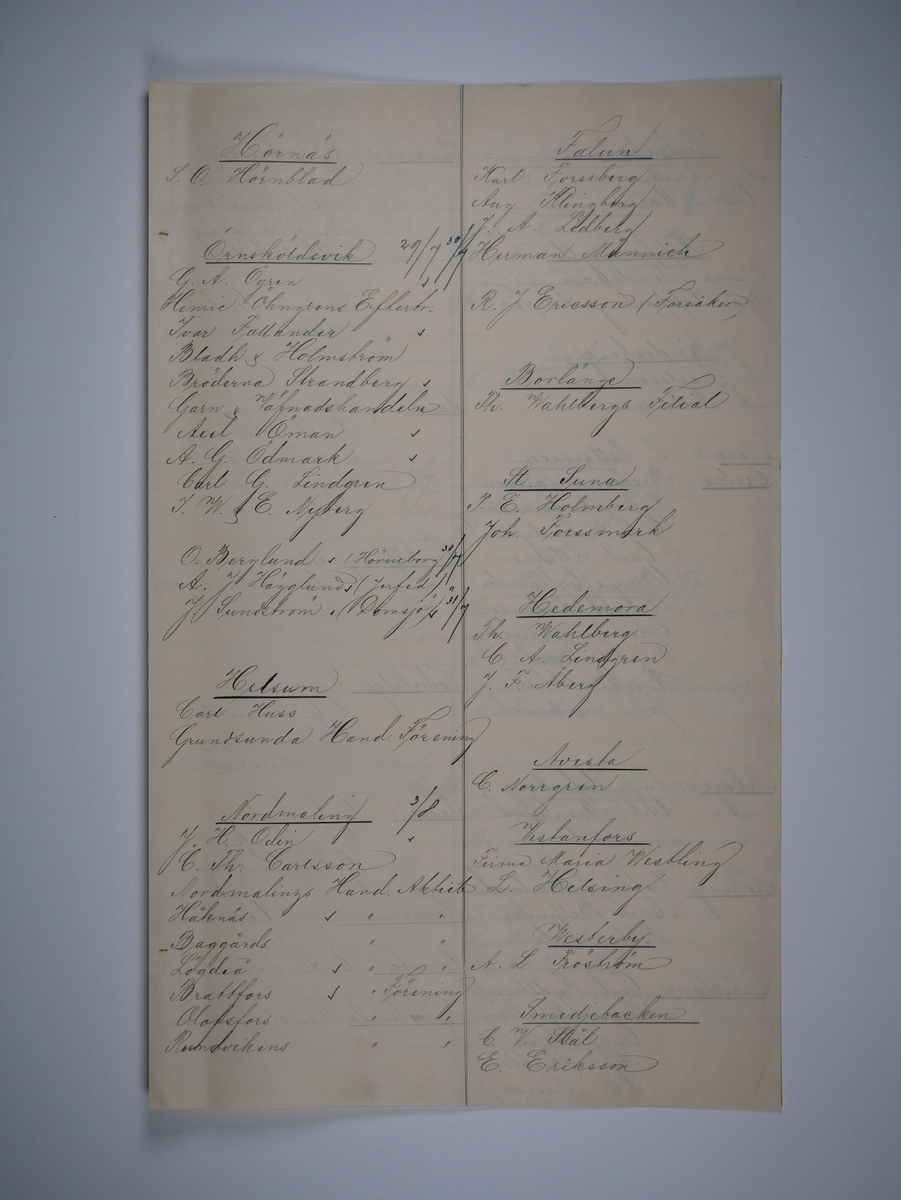 Hörnäs
S. O. Hörnblad
Örnsköldsvik 29/7 30/7
G. A. Ögren s
Henric Öhngrens Eftertr.
Ivar Fallander s
Bladh & Holmström
Bröderna Strandberg s
Garn & Väfnadshandeln
Axel Öman s
A. G. Ödmark s
Carl G. Lindgren
J. W. & E. Nyberg
O. Berglund s (Hörneborg 30/7
A. J. Hägglunds (Jerfed) "
J. Sundström s (Domsjö) s 31/7
Helsum
Carl Huss
Grundsunda Hand. Förening
Nordmaling 3/8
J. H. Odin s
C. Th. Carlsson
Nordmalings Hand. Aktieb
Håknäs s " "
Baggårds " "
Lögdeå s " "
Brattfors s " Förening
Olofsfors " "
Rundvikens " "
Falun
Karl Forssberg
Aug. Klingberg
J. A. Lidberg
Herman Münnich
R. J. Ericsson (Forsåker)
Borlänge
Th. Wahlbergs Filial
St. Tuna
P. E. Holmberg
Joh. Forssmark
Hedemora
Th. Wahlberg
C. A. Lindgren
J. F. Åberg
Avesta
C. Norrgren
Vestanfors
Firma Maria Westling
L. Helsing
Westerby
A. L. Fröström
Smedjebacken
C. V. Stål
E. Eriksson